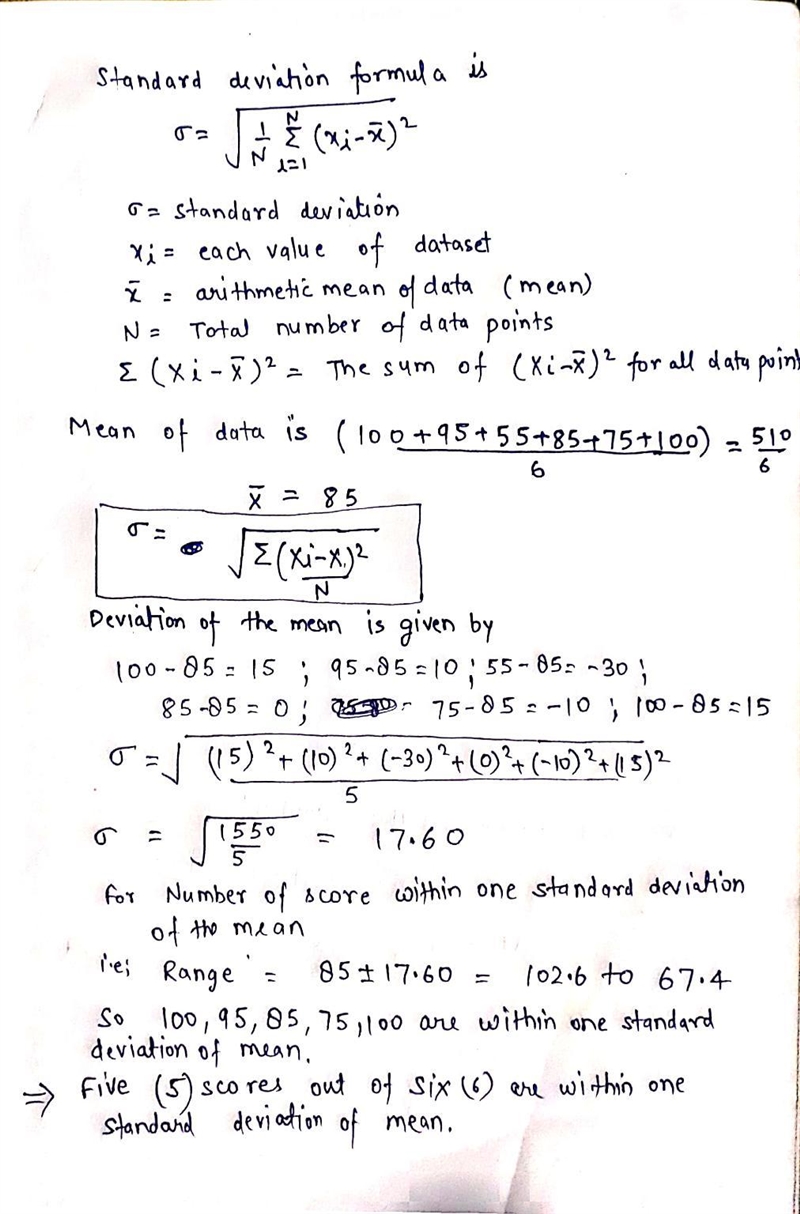 Standard deviation formula is
σ = √(1/N Σ_{i=1}^{N} (xi - x̄)²)
σ = standard deviation
xi = each value of dataset
x̄ = arithmetic mean of data (mean)
N = Total number of data points
Σ (Xi - x̄)² = The sum of (Xi - x̄)² for all data point
Mean of data is (100+95+55+85+75+100)/6 = 510/6
x̄ = 85
σ = √(Σ(Xi - X.)²/N)
Deviation of the mean is given by
100 - 85 = 15 ; 95 - 85 = 10 ; 55 - 85 = -30 ;
85 - 85 = 0 ; 75 - 85 = -10 ; 100 - 85 = 15
σ = √((15)² + (10)² + (-30)² + (0)² + (-10)² + (15)²/5)
σ = √(1550/5) = 17.60
for Number of score within one standard deviation
of the mean
i.e; Range = 85 ± 17.60 = 102.6 to 67.4
So 100, 95, 85, 75, 100 are within one standard
deviation of mean.
⇒ Five (5) scores out of Six (6) are within one
standard deviation of mean.